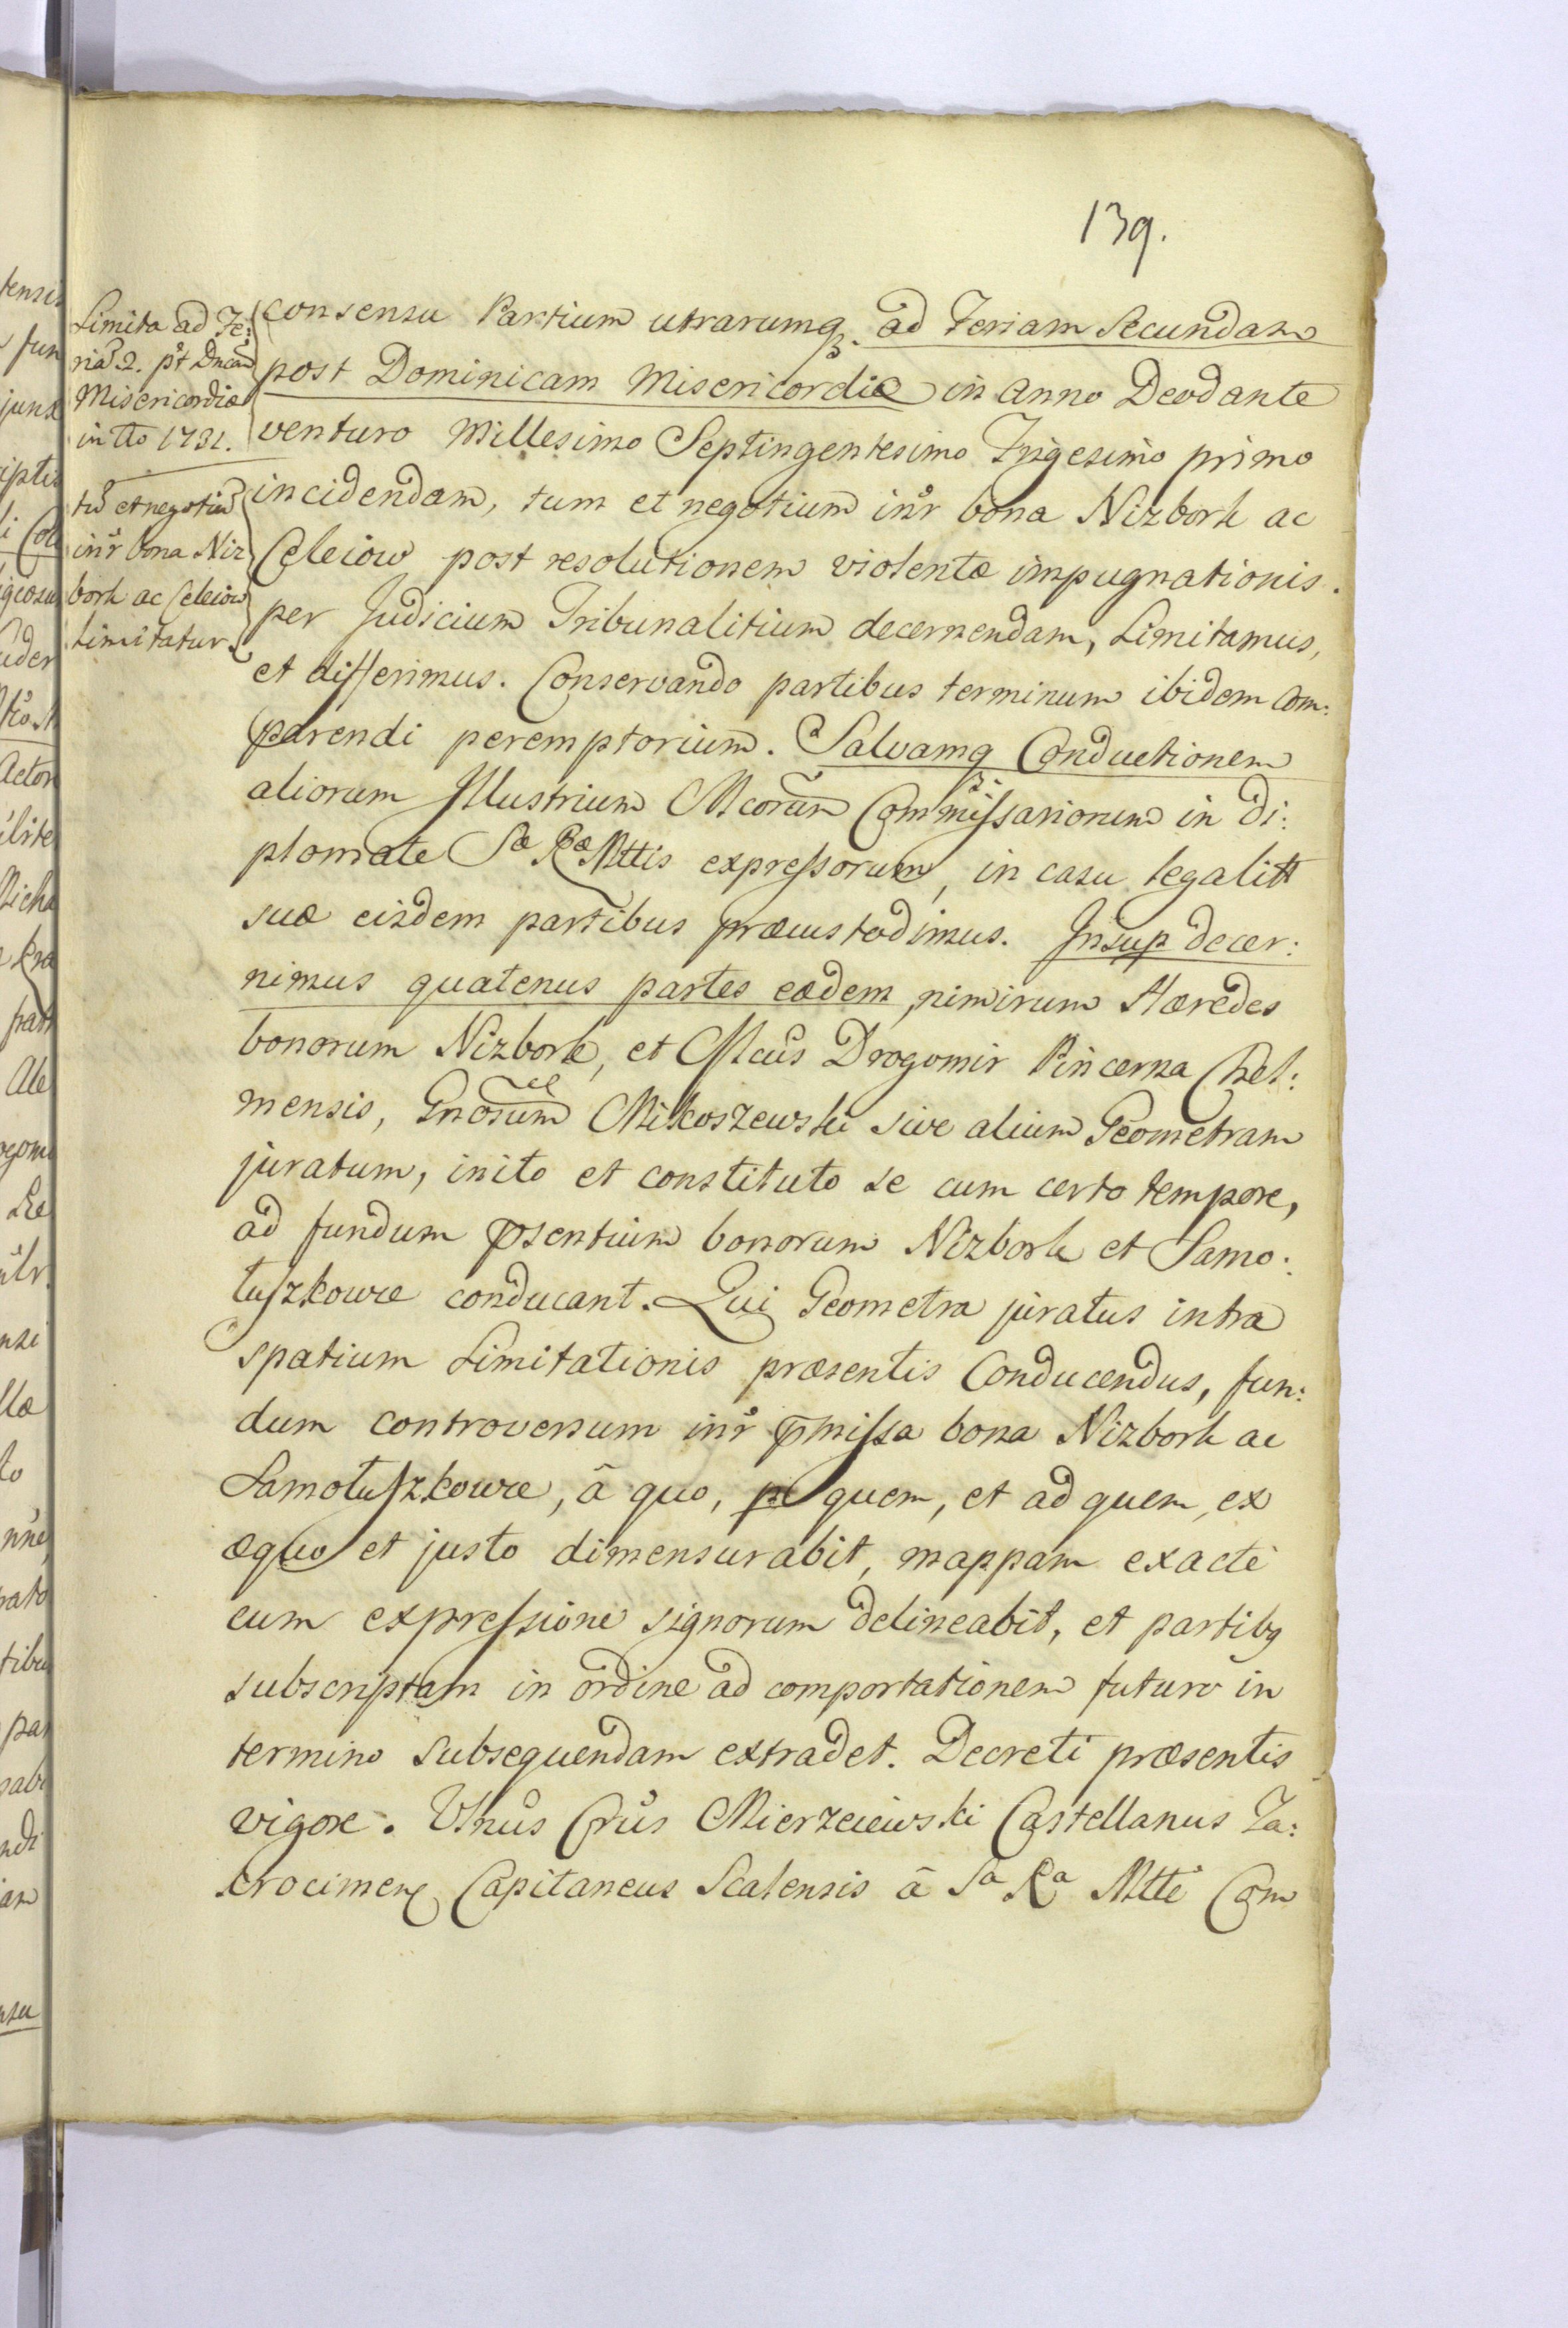 139.
Limita ad Fe:
riã 2. p't Dncam
Misericordiæ
in Ao 1731.
tũ et negotiũ
inr bona Niz
bork ac Celeiow
Limitatur.
consensu Partium utrarumq. ad Feriam Secundam
post Dominicam Misericordiæ in Anno Deodante
venturo Millesimo Septingentesimo Trigesimo primo
incidendam, tum et negotium inr bona Nizbork ac
Celeiow post resolutionem violentæ impugnationis.
per Judicium Tribunalitium decernendam, Limitamus,
et differimus. Conservando partibus terminum ibidem Com:
parendi peremptorium. Salvamq Conductionem
aliorum Illustrium Mcorum Commissariorum in Di:
plomate Sæ Ræ Mttis expressorum, in casu legalitt
suæ eisdem partibus præcustodimus. Insup decer:
nimus quatenus partes eædem, nimirum Hæredes
bonorum Nizbork, et Mcus Drogomir Pincerna Chel:
mensis, Gnosum Mikoszewski sive alium Geometram
juratum, inito et constituto se cum certo tempore,
ad fundum psentium bonorum Nizbork et Samo:
łuszkowce conducant. Qui Geometra juratus intra
spatium Limitationis præsentis Conducendus, fun:
dum controversum inr pmissa bona Nizbork ac
Samołuszkowce, â quo, p quem, et ad quem, ex
æquo et justo dimensurabit, mappam exactè
cum expressione signorum delineabit, et partibq
subscriptam in ordine ad comportationem futuro in
termino subsequendam extradet. Decreti præsentis
vigore. Mierzeiewski Castellanus Za:
krocimen Capitaneus Scalensis â Sa Ra Mtte Com